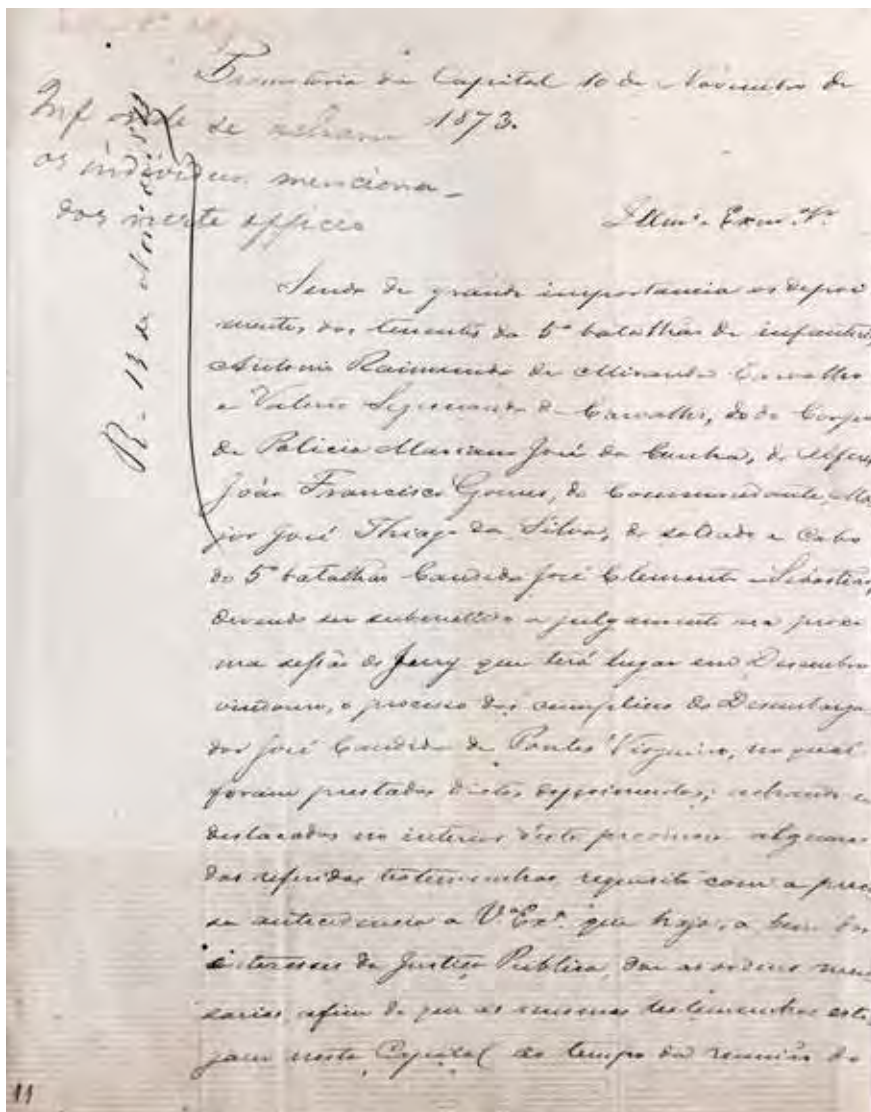 Promotoria da Capital 10 de Novembro de
1873.
Inf onde se acham
os individuos menciona-
dos neste officio
R. 13 de Novembro
Illmo. Exmo. Sr.
Sendo de grande importancia os depoi
mentos dos tenentes do 5º batalhão de infanteria,
Antonio Raimundo de Miranda Carvalho
e Valerio Sigisnando de Carvalho, do do Corpo
de Policia Mariano José da Cunha, do Alferes
João Francisco Gomes, do Commandante, Ma
jor José Thiago da Silva, do soldado e Cabo
do 5º batalhão Candido José Clemente e Sebastião,
devendo ser submettido a julgamento na proxi
ma sessão do Jury que terá lugar em Desembro
vindouro, o processo dos cumplices do Desembarga
dor José Candido de Pontes Visgueiro, no qual
foram prestados d'estes depoimentos; achando
destacados no interior d'esta provincia algumas
das referidas testemunhas requisito com a preci
sa antecedencia a V. Exª. que haja, a bem dos
interesses da Justiça Publica, dar as ordens neces
sarias, afim de que as mesmas testemunhas este
jam nesta Capital ao tempo da reunião do
11